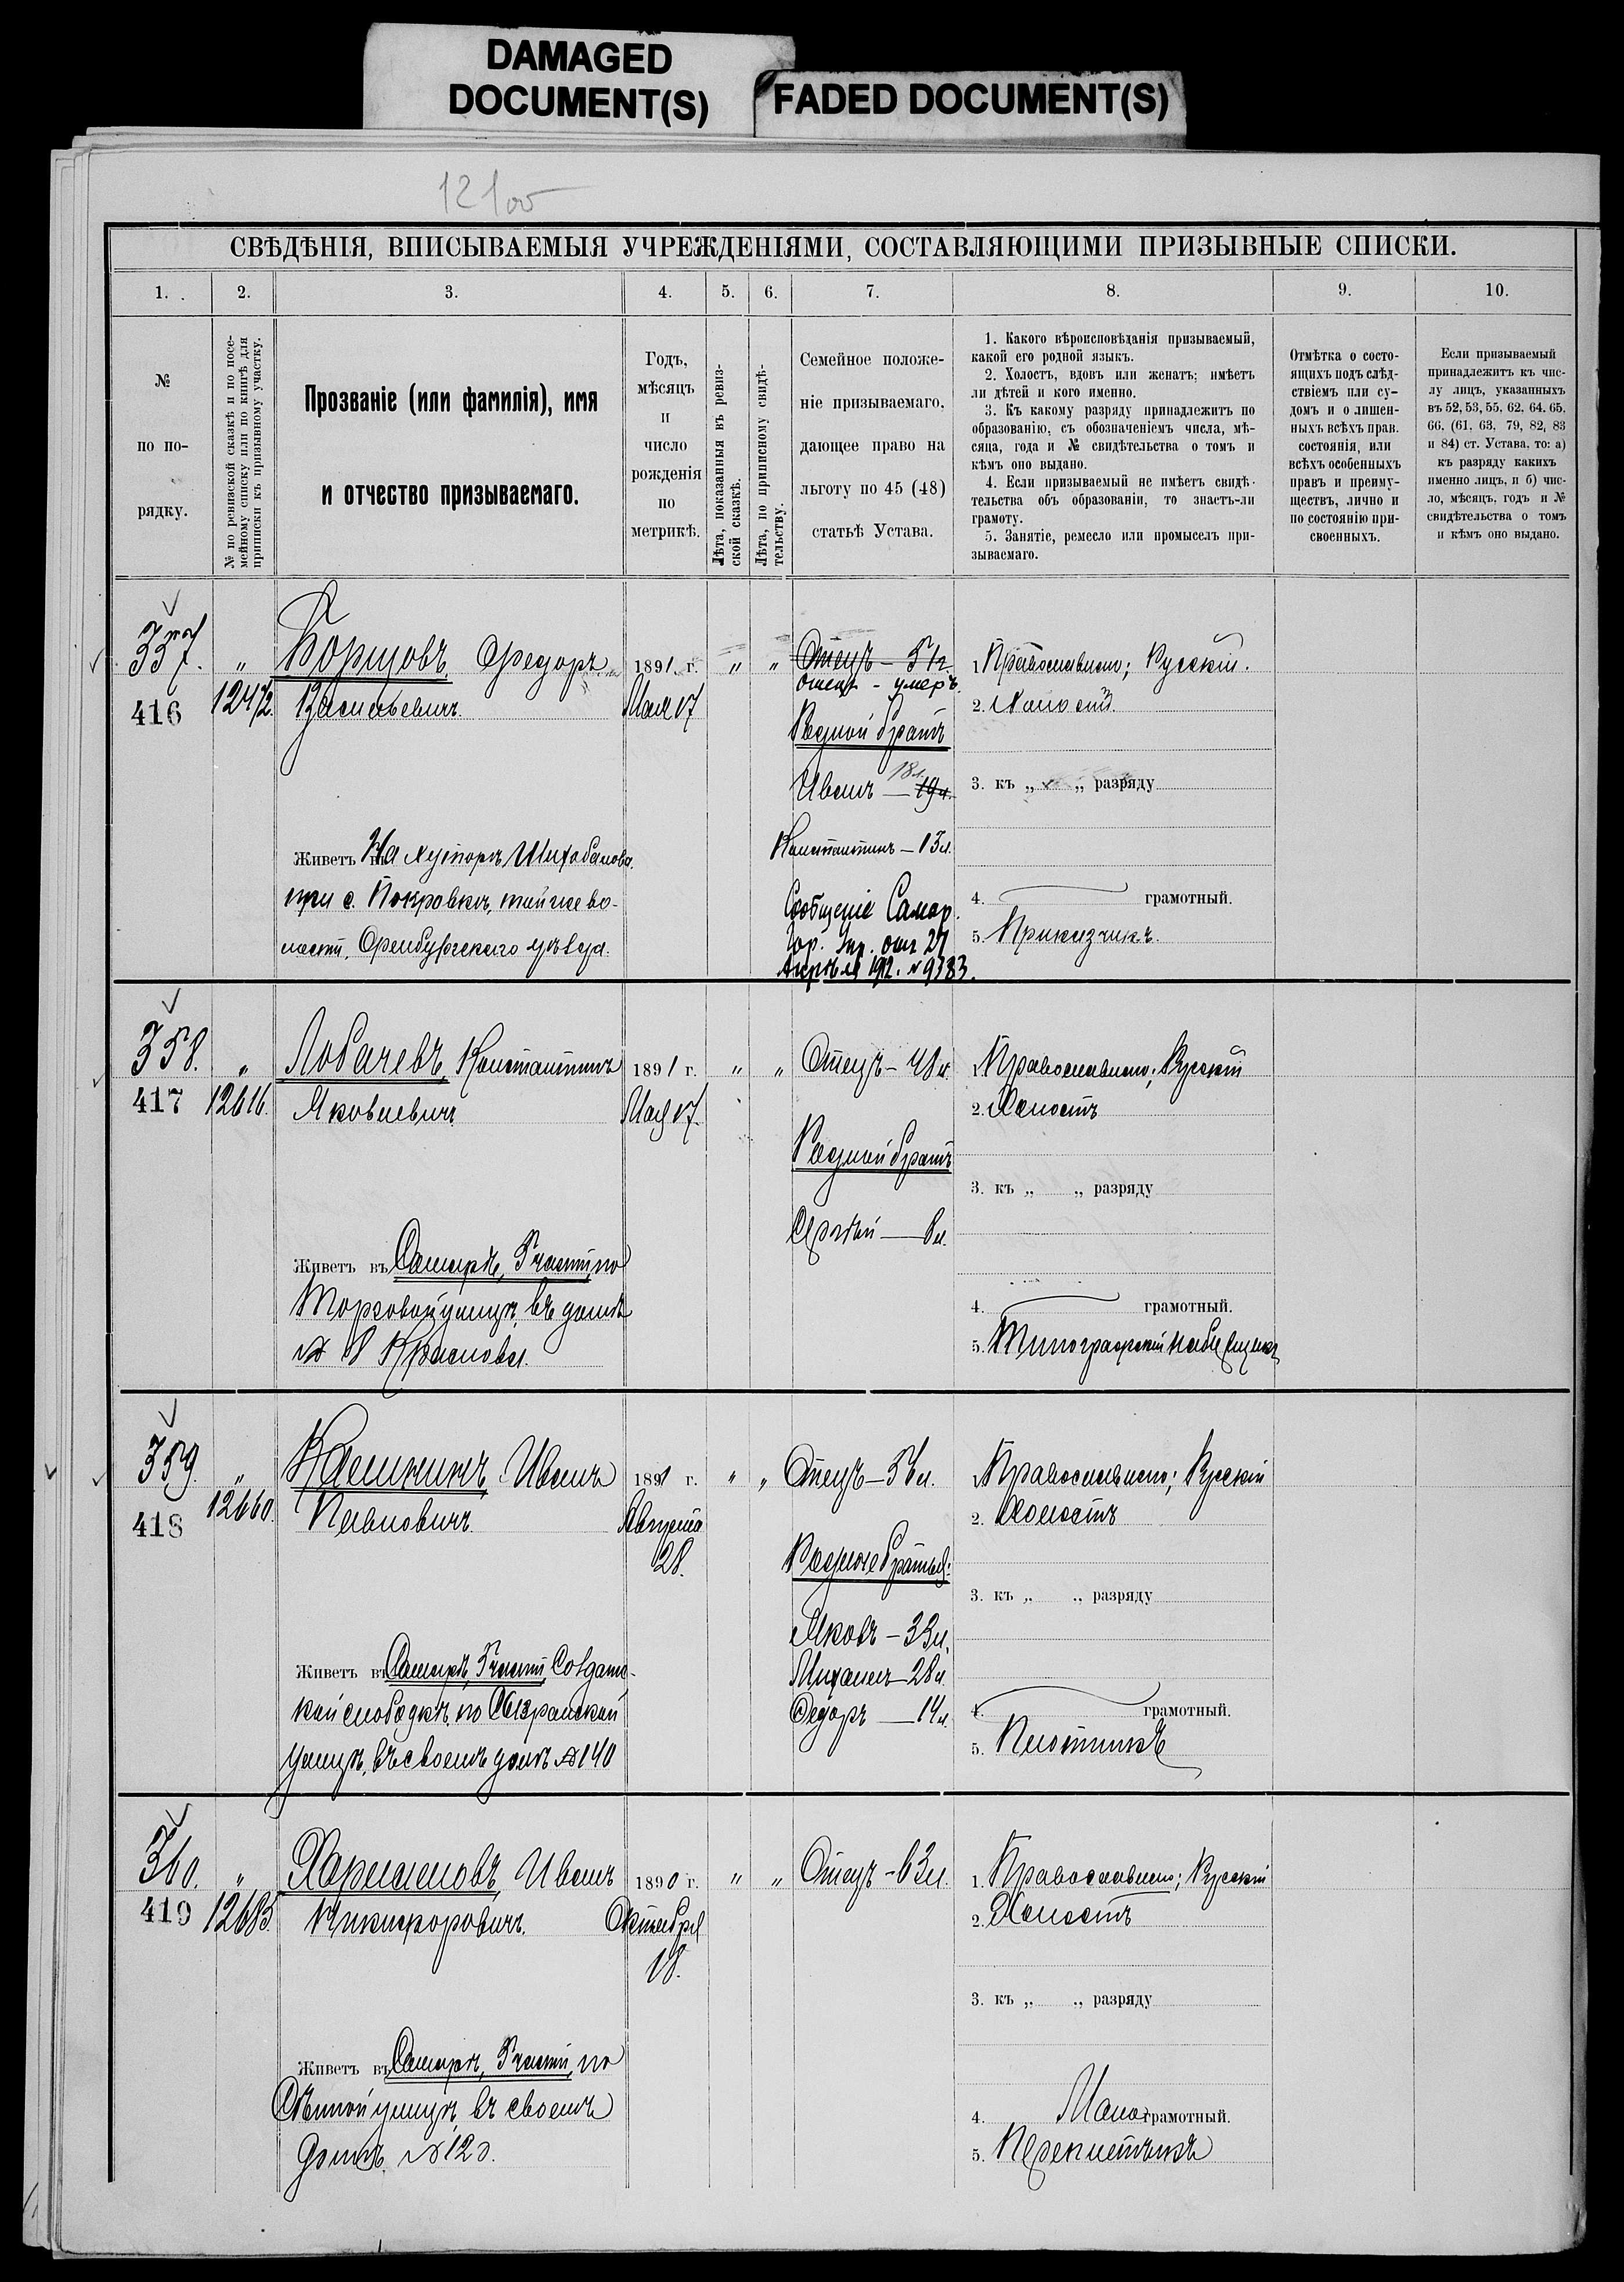 DAMAGED
DOCUMENT(S)
FADED DOCUMENT(S)
12100
СВѢДѢНІЯ, ВПИСЫВАЕМЫЯ УЧРЕЖДЕНІЯМИ, СОСТАВЛЯЮЩИМИ ПРИЗЫВНЫЕ СПИСКИ.
1. 2. 3. 4. 5. 6. 7. 8. 9. 10.
№
по по-
рядку.
№ по ревизской сказкѣ и по посе-
мейному списку или по книгѣ для
приписки къ призывному участку.
Прозваніе (или фамилія), имя
и отчество призываемаго.
Годъ,
мѣсяцъ
и
число
рожденія
по
метрикѣ.
Лѣта, показанныя въ ревиз-
ской сказкѣ.
Лѣта, по приписному свидѣ-
тельству.
Семейное положе-
ніе призываемаго,
дающее право на
льготу по 45 (48)
статьѣ Устава.
1. Какого вѣроисповѣданія призываемый,
какой его родной языкъ.
2. Холостъ, вдовъ или женатъ; имѣетъ
ли дѣтей и кого именно.
3. Къ какому разряду принадлежитъ по
образованію, съ обозначеніемъ числа, мѣ-
сяца, года и № свидѣтельства о томъ и
кѣмъ оно выдано.
4. Если призываемый не имѣетъ свидѣ-
тельства объ образованіи, то знаетъ-ли
грамоту.
5. Занятіе, ремесло или промыселъ при-
зываемаго.
Отмѣтка о состо-
ящихъ подъ слѣд-
ствіемъ или су-
домъ и о лишен-
ныхъ всѣхъ прав.
состоянія, или
всѣхъ особенныхъ
правъ и преиму-
ществъ, лично и
по состоянію при-
своенныхъ.
Если призываемый
принадлежитъ къ чис-
лу лицъ, указанныхъ
въ 52, 53, 55, 62, 64, 65,
66, (61, 63, 79, 82, 83
и 84) ст. Устава, то: а)
къ разряду какихъ
именно лицъ, и б) чис-
ло, мѣсяцъ, годъ и №
свидѣтельства о томъ
и кѣмъ оно выдано.
357.
416
"
12472.
Борщовъ, Федоръ
Васильевичъ.
Живетъ въ На хуторѣ Шихобалова
при с. Покровкѣ, той же во-
лости, Оренбургскаго уѣзда.
1891 г.
Мая 17
" "
Отецъ – 51 г.
Отецъ - умеръ.
Родной братъ
Иванъ — 19 л. 18 л.
Константинъ – 13 л.
Сообщеніе Самар.
Гор. Упр. отъ 27
Апрѣля 1912. № 9383.
1. Православнаго; Русскій.
2. Холостъ.
3. къ „ „ разряду
4. грамотный.
5. Приказчикъ.
358.
417
"
12616.
Лобачевъ, Константинъ
Яковлевичъ
Живетъ въ Самарѣ, 5 части, по
Торговой улицѣ, въ домѣ
№ 8 Краснова.
1891 г.
Мая 17.
" "
Отецъ – 48 л.
Родной братъ
Сергѣй — 8 л.
Православнаго; Русскій
2. Холостъ
3. къ „ „ разряду
4. грамотный.
5. Типографскій наборщикъ
359
418
"
12660.
Кашкинъ, Иванъ
Павловичъ
Живетъ въ Самарѣ, 5 части, Солдатс-
кой слободкѣ, по Сызранской
улицѣ, въ своемъ домѣ № 140
1891 г.
Августа
28.
" "
Отецъ – 56 л.
Родные братья:
Яковъ – 33 л.
Михаилъ – 28 л.
Федоръ — 14 л.
Православнаго; Русскій
2. Холостъ
3. къ „ „ разряду
4. грамотный.
5. Плотникъ
360.
419
"
12685.
Харламовъ, Иванъ
Никифоровичъ.
Живетъ въ Самарѣ, 5 части, по
Сѣнной улицѣ, въ своемъ
домѣ, № 120.
1890 г.
Октября
18.
" "
Отецъ – 63 л.
1. Православнаго; Русскій
2. Холостъ
3. къ „ „ разряду
4. Мало грамотный.
5. Переплетчикъ